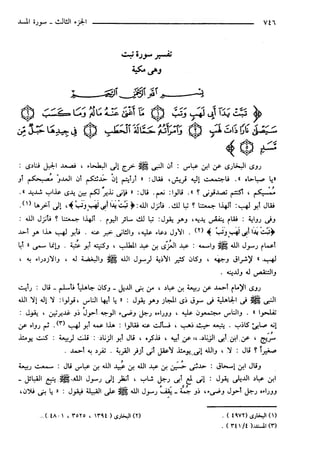 ٧٤٦ الجزء الثالث - سورة المسد
تفسير سورة تبت
وهى مكية
بسم الله الرحمن الرحيم
﴿ تَبَّتْ يَدَا أَبِي لَهَبٍ وَتَبَّ ۝ مَا أَغْنَىٰ عَنْهُ مَالُهُ وَمَا كَسَبَ
۝ سَيَصْلَىٰ نَارًا ذَاتَ لَهَبٍ ۝ وَامْرَأَتُهُ حَمَّالَةَ الْحَطَبِ ۝ فِي جِيدِهَا حَبْلٌ مِّن
مَّسَدٍ ۝ ﴾
روى البخارى عن ابن عباس : أن النبى ﷺ خرج إلى البطحاء ، فصعد الجبل فنادى :
« يا صباحاه ». فاجتمعت إليه قريش، فقال: « أرأيتم إن حدثتكم أن العدوّ مصبحكم أو
مُمَسيكم ، أكنتم تصدقونى ؟ ». قالوا: نعم. قال: « فإنى نذير لكم بين يدى عذاب شديد ».
فقال أبو لهب: ألهذا جمعتنا ؟ تبا لك. فأنزل الله: ﴿ تَبَّتْ يَدَا أَبِي لَهَبٍ وَتَبَّ ﴾، إلى آخرها (١).
وفى رواية : فقام ينفض يديه، وهو يقول: تبا لك سائر اليوم . ألهذا جمعتنا ؟ فأنزل الله :
﴿ تَبَّتْ يَدَا أَبِي لَهَبٍ وَتَبَّ ﴾ (٢) . الأول دعاء عليه، والثانى خبر عنه . فأبو لهب هذا هو أحد
أعمام رسول الله ﷺ واسمه : عبد العُزّى بن عبد المطلب ، وكنيته أبو عُتبة . وإنما سمى « أبا
لهب » لإشراق وجهه ، وكان كثير الأذية لرسول الله ﷺ والبغضة له ، والازدراء به ،
والتنقص له ولدينه .
روى الإمام أحمد عن ربيعة بن عباد ، من بنى الديل - وكان جاهلياً فأسلم - قال : رأيت
النبى ﷺ فى الجاهلية فى سوق ذى المجاز وهو يقول : « يا أيها الناس ،قولوا: لا إله إلا الله
تفلحوا » . والناس مجتمعون عليه ، ووراءه رجل وضىء الوجه أحولُ ذو غديرتين ، يقول :
إنه صابئ كاذب . يتبعه حيث ذهب ، فسألت عنه فقالوا : هذا عمه أبو لهب (٣). ثم رواه عن
سُرَيج ، عن ابن أبى الزناد، عن أبيه ، فذكره ، قال أبو الزناد : قلت لربيعة : كنت يومئذ
صغيراً ؟ قال : لا ، والله إنى يومئذ لأعقل أنى أزفر القربة . تفرد به أحمد .
وقال ابن إسحاق : حدثنى حُسَين بن عبد الله بن عُبيد الله بن عباس قال : سمعت ربيعة
ابن عباد الديلى يقول : إنى لمع أبى رجل شاب ، أنظر إلى رسول الله ﷺ يتبع القبائل -
ووراءه رجل أحول وضىء، ذو جُمَّة - يقف رسول الله ﷺ على القبيلة فيقول : « يا بنى فلان،
(١) البخارى (٤٩٧٢) . (٢) البخارى (١٣٩٤ ، ٣٥٢٥ ، ٤٨٠١) .
(٣) المسند( ٤/ ٣٤١ ) .